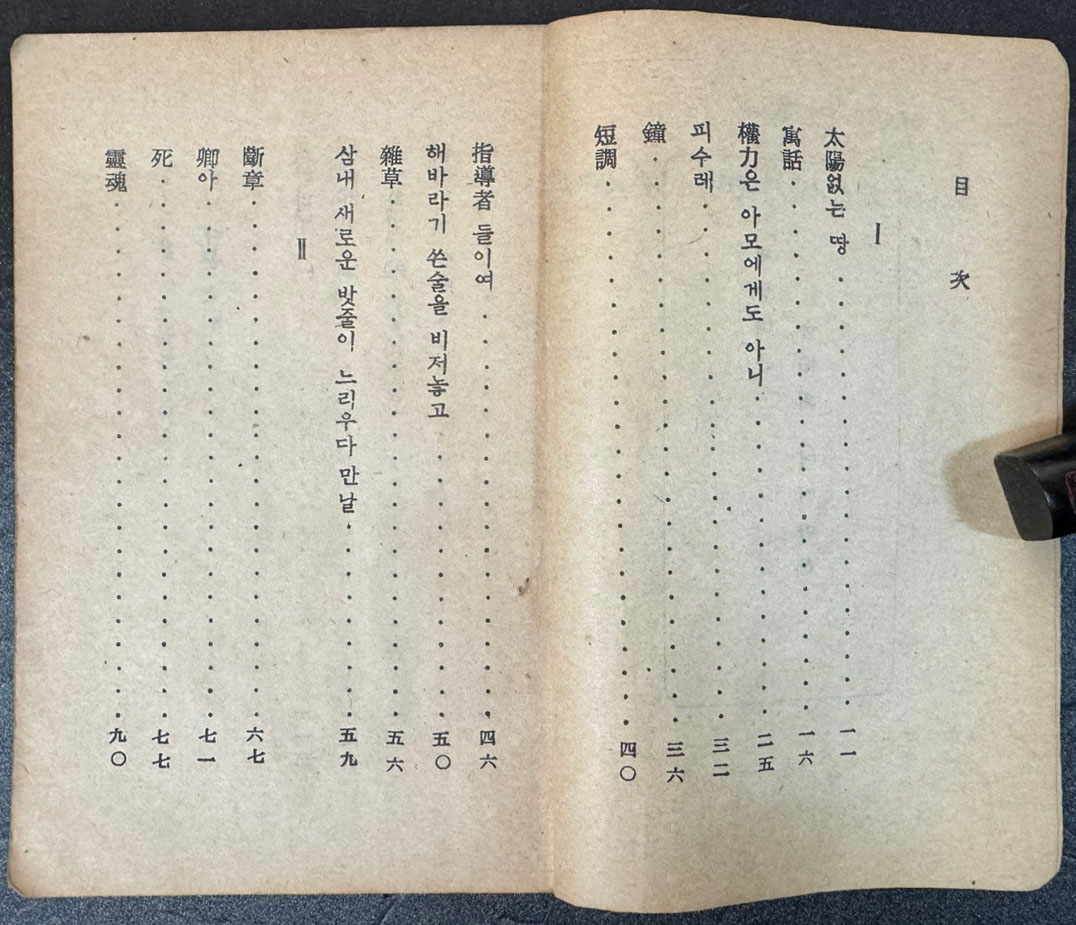 目次
I
太陽없는 땅 ・・・・・・・・・・・・・・・・・・・ 一一
寓話 ・・・・・・・・・・・・・・・・・・・・・・・ 一六
權力은 아모에게도 아니 ・・・・・・・・・・・・・・ 二五
피수레 ・・・・・・・・・・・・・・・・・・・・・・ 三二
鐘 ・・・・・・・・・・・・・・・・・・・・・・・・ 三六
短調 ・・・・・・・・・・・・・・・・・・・・・・・ 四〇
指導者 들이여 ・・・・・・・・・・・・・・・・・・ 四六
해바라기 쓴술을 비저놓고 ・・・・・・・・・・・・ 五〇
雜草 ・・・・・・・・・・・・・・・・・・・・・・・ 五六
삼내 새로운 밧줄이 느리우다 만날 ・・・・・・・・・ 五九
II
斷章 ・・・・・・・・・・・・・・・・・・・・・・・ 六七
卿아 ・・・・・・・・・・・・・・・・・・・・・・・ 七一
死 ・・・・・・・・・・・・・・・・・・・・・・・・ 七七
靈魂 ・・・・・・・・・・・・・・・・・・・・・・・ 九〇